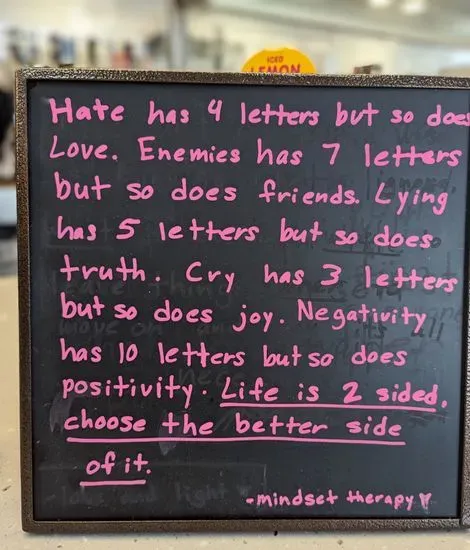 ICED
LEMON
Hate has 4 letters but so does
Love. Enemies has 7 letters
but so does friends. Lying
has 5 letters but so does
truth. Cry has 3 letters
but so does joy. Negativity
has 10 letters but so does
positivity. Life is 2 sided,
choose the better side
of it.
-mindset therapy